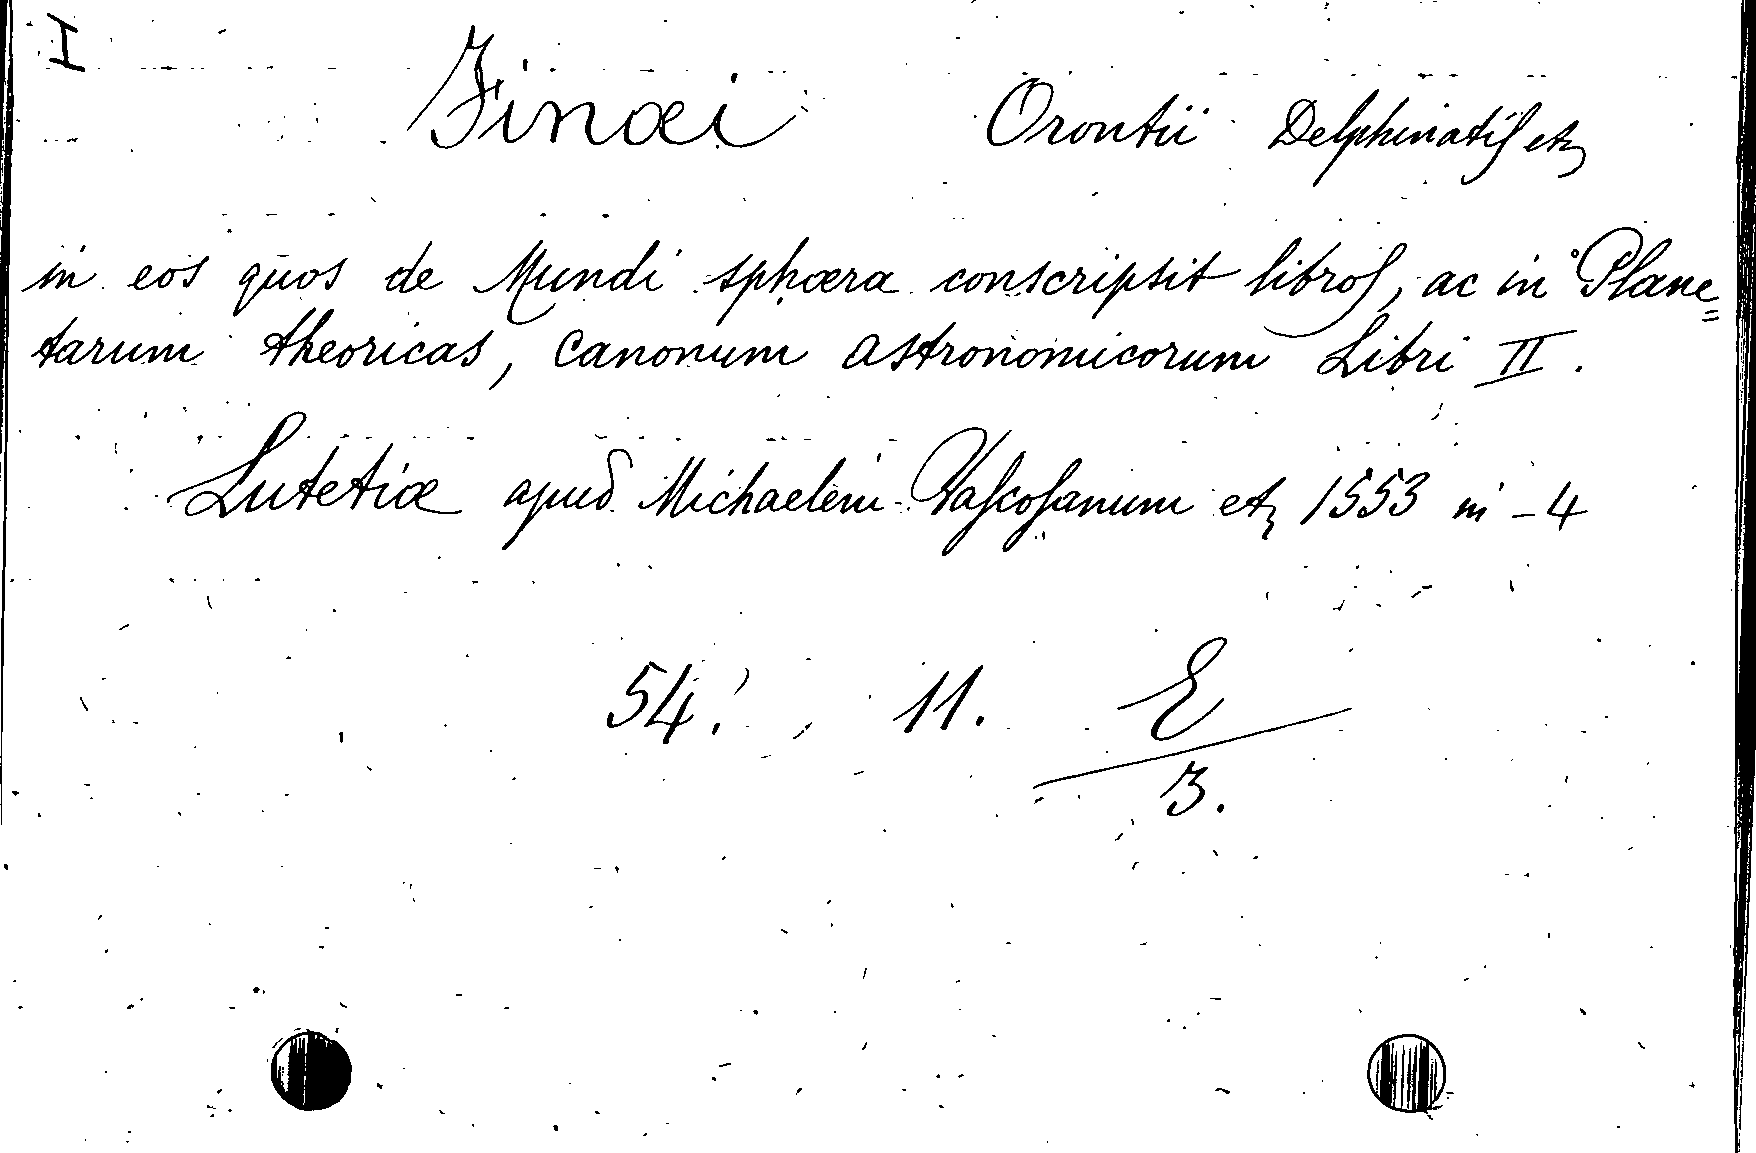 I
Finæi Orontii Delphinatis etc
in eos quos de Mundi sphæra conscripsit libros, ac in Plane=
tarum theoricas, canonum astronomicorum Libri II.
Lutetiæ apud Michaelem Vascosanum etc 1553 in-4
54. 11. E
3.